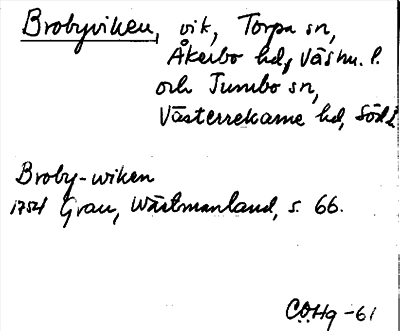 Brobyviken, vik, Torpa sn,
Åkerbo hd, Västm. l.
och Tumbo sn,
Västerrekarne hd, Söd. l.
Broby-wiken
1754 Grau, Wästmanland, s. 66.
CÖHg -61